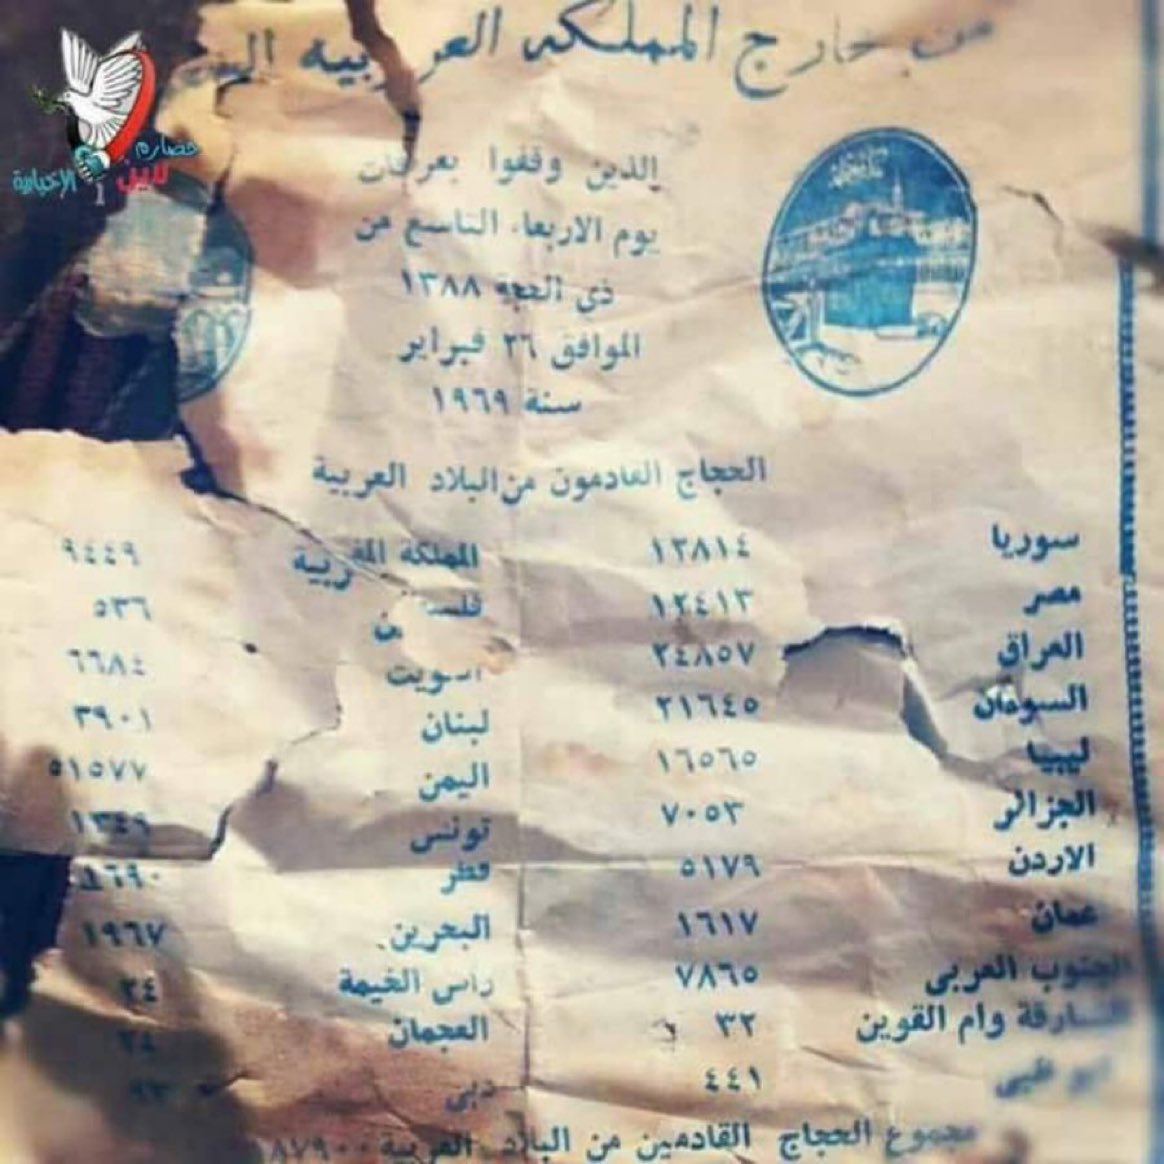 من خارج المملكه العربيه
حضارم
لاين
الإخبارية
الذين وقفوا بعرفات
يوم الاربعاء التاسع من
ذى الحجه ١٣٨٨
الموافق ٢٦ فبراير
سنة ١٩٦٩
الحجاج القادمون من البلاد العربية
سوريا ١٣٨١٤
مصر ١٢٤١٣
العراق ٢٤٨٥٧
السودان ٢١٦٤٥
ليبيا ١٦٥٦٥
الجزائر ٧٠٥٣
الاردن ٥١٧٩
عمان ١٦١٧
الجنوب العربى ٧٨٦٥
الشارقة وام القوين ٣٢
ابو ظبى ٤٤١
المملكه المغربيه ٩٤٤٩
فلسطين ٥٣٦
الكويت ٦٦٨٤
لبنان ٣٩٠١
اليمن ٥١٥٧٧
تونس ١٣٤٩
قطر
البحرين ١٩٦٧
راس الخيمة ٢٤
العجمان ٢٤
دبى ٩٣
مجموع الحجاج القادمين من البلاد العربية